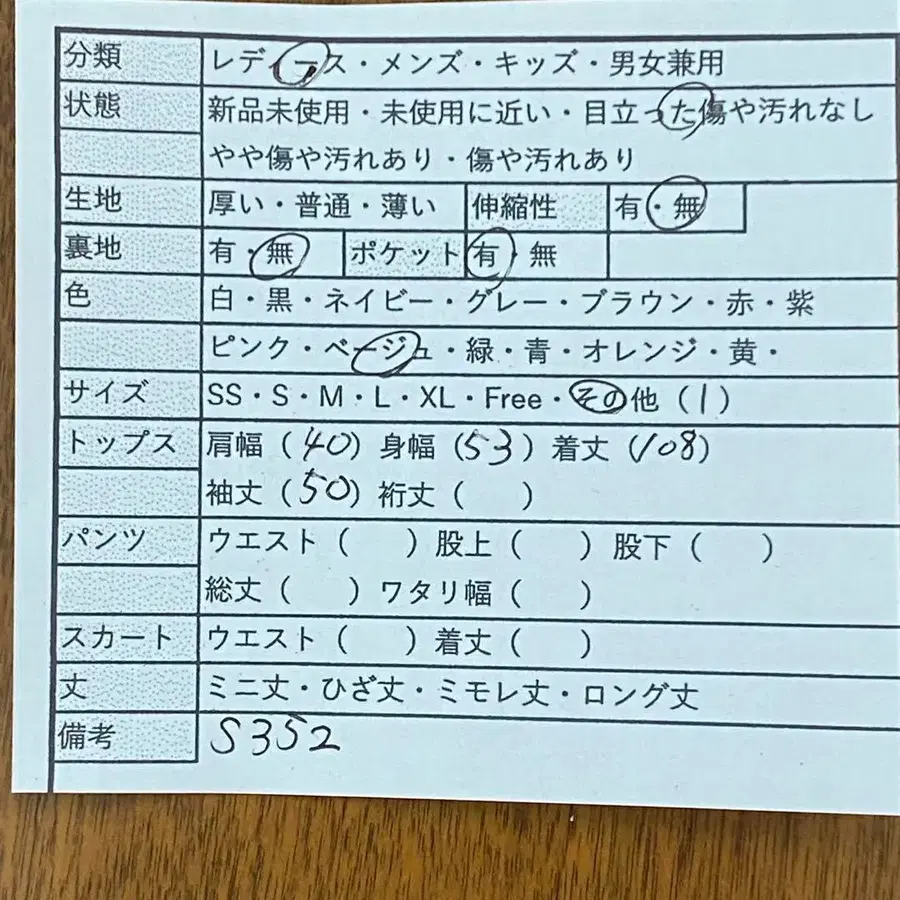 分類 レディース・メンズ・キッズ・男女兼用
状態 新品未使用・未使用に近い・目立った傷や汚れなし
やや傷や汚れあり・傷や汚れあり
生地 厚い・普通・薄い 伸縮性 有・無
裏地 有・無 ポケット 有・無
色 白・黒・ネイビー・グレー・ブラウン・赤・紫
ピンク・ベージュ・緑・青・オレンジ・黄・
サイズ SS・S・M・L・XL・Free・その他（1）
トップス 肩幅（40）身幅（53）着丈（108）
袖丈（50）裄丈（　）
パンツ ウエスト（　）股上（　）股下（　）
総丈（　）ワタリ幅（　）
スカート ウエスト（　）着丈（　）
丈 ミニ丈・ひざ丈・ミモレ丈・ロング丈
備考 S352